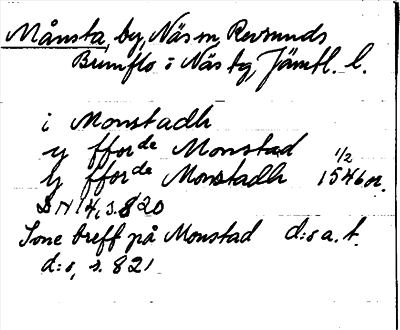 Månsta, by, Näs sn, Revsunds
Brunflo o Näs tg, Jämtl. l.
i Monstadh
y fforde Monstad
y fforde Monstadh 1/2 1546 or.
DN 14, s. 820
Sone breff på Monstad d:o a. t.
d:o, s. 821